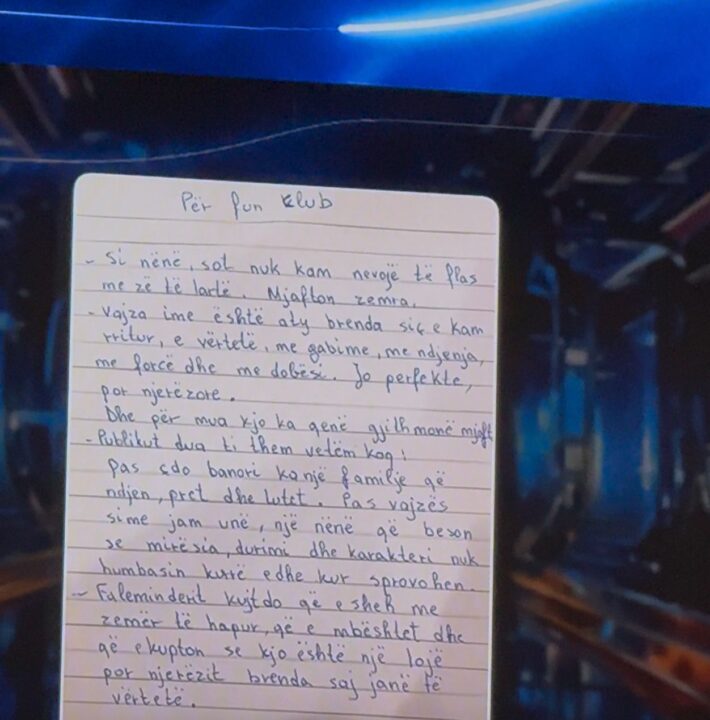 Për fun klub
- Si nënë, sot nuk kam nevojë të flas
me zë të lartë. Mjafton zemra.
- Vajza ime është aty brenda siç e kam
rritur, e vërtetë, me gabime, me ndjenja,
me forcë dhe me dobësi. Jo perfekte,
por njerëzore.
Dhe për mua kjo ka qenë gjithmonë mjaft
- Publikut dua ti them vetëm kaq:
pas çdo banori ka një familje që
ndjen, pret dhe lutet. Pas vajzës
sime jam unë, një nënë që beson
se mirësia, durimi dhe karakteri nuk
humbasin kurrë edhe kur sprovohen.
- Faleminderit kujtdo që e sheh me
zemër të hapur, që e mbështet dhe
që e kupton se kjo është një lojë
por njerëzit brenda saj janë të
vërtetë.